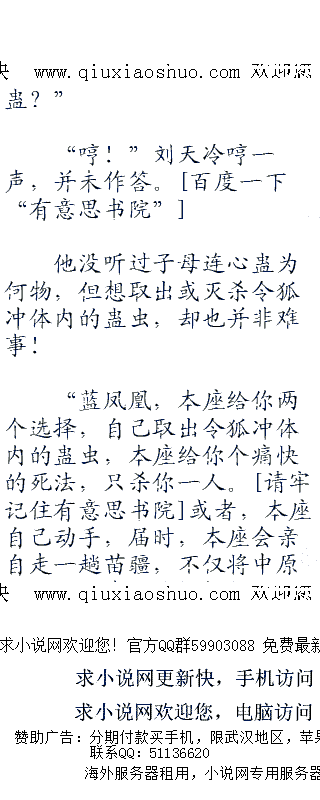 快 www.qiuxiaoshuo.com 欢迎您
蛊？”
“哼！”刘天冷哼一
声，并未作答。[百度一下
“有意思书院”]
他没听过子母连心蛊为
何物，但想取出或灭杀令狐
冲体内的蛊虫，却也并非难
事！
“蓝凤凰，本座给你两
个选择，自己取出令狐冲体
内的蛊虫，本座给你个痛快
的死法，只杀你一人。[请牢
记住有意思书院]或者，本座
自己动手，届时，本座会亲
自走一趟苗疆，不仅将中原
快 www.qiuxiaoshuo.com 欢迎您
求小说网欢迎您！官方QQ群59903088 免费最新
求小说网更新快，手机访问
求小说网欢迎您，电脑访问
赞助广告：分期付款买手机，限武汉地区，苹果
联系QQ：51136620
海外服务器租用，小说网专用服务器